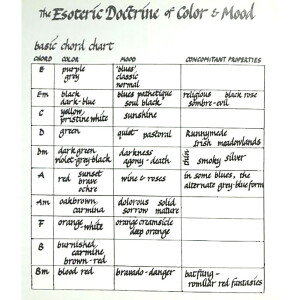 The Esoteric Doctrine of Color & Mood
basic chord chart
CHORD COLOR MOOD CONCOMITANT PROPERTIES
E purple 'blues'
grey classic
normal
Em black blues pathetique religious black rose
dark-blue soul black sombre-evil
C yellow, sunshine
pristine white
D green quiet pastoral Runnymede
Irish meadowlands
Dm dark green darkness thin silver
violet-grey-black agony-death smoky
A red sunset wine & roses in some blues, the
brave alternate grey-blue form
ochre
Am oakbrown, dolorous solid
carmina sorrow mature
F orange orange creamsicle
-white deep orange
B burnished,
carmine
brown-red
Bm blood red bravado-danger batfang-
romilar red fantasies